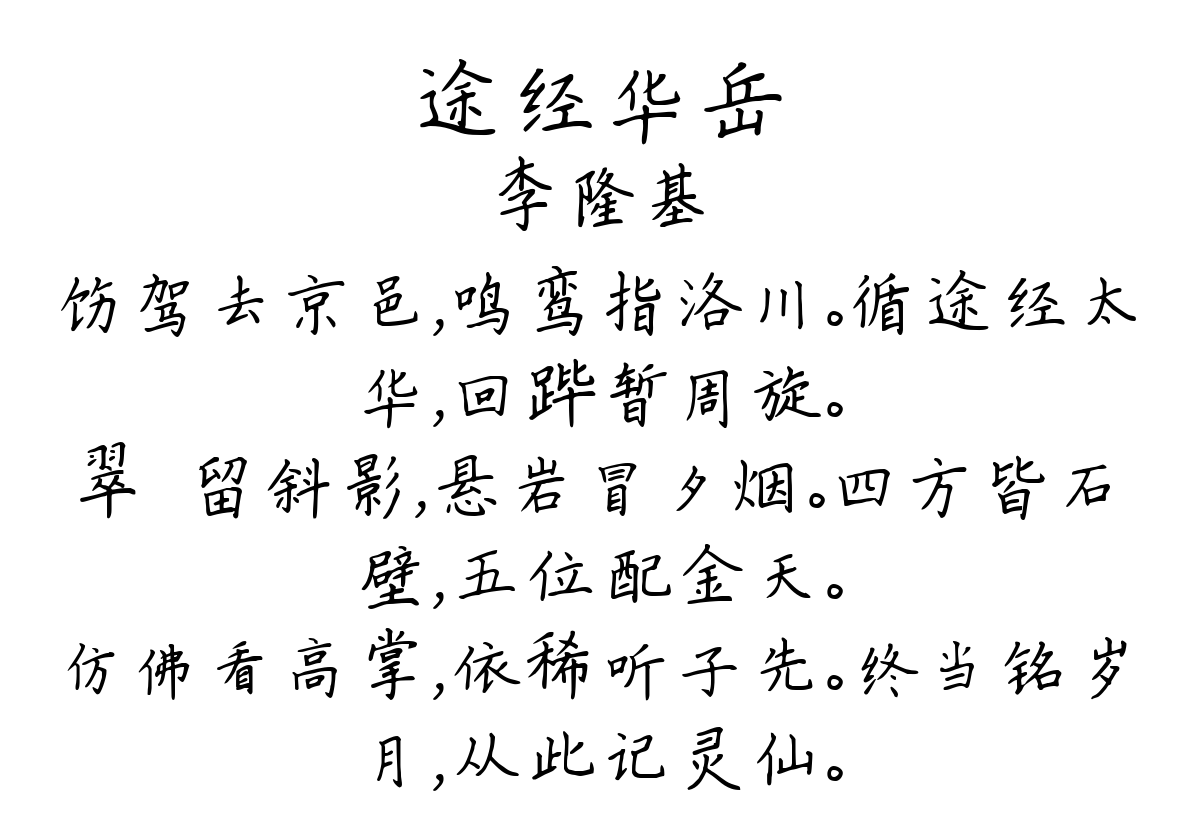 途经华岳
李隆基
饬驾去京邑,鸣鸾指洛川。循途经太
华,回跸暂周旋。
翠 留斜影,悬岩冒夕烟。四方皆石
壁,五位配金天。
仿佛看高掌,依稀听子先。终当铭岁
月,从此记灵仙。